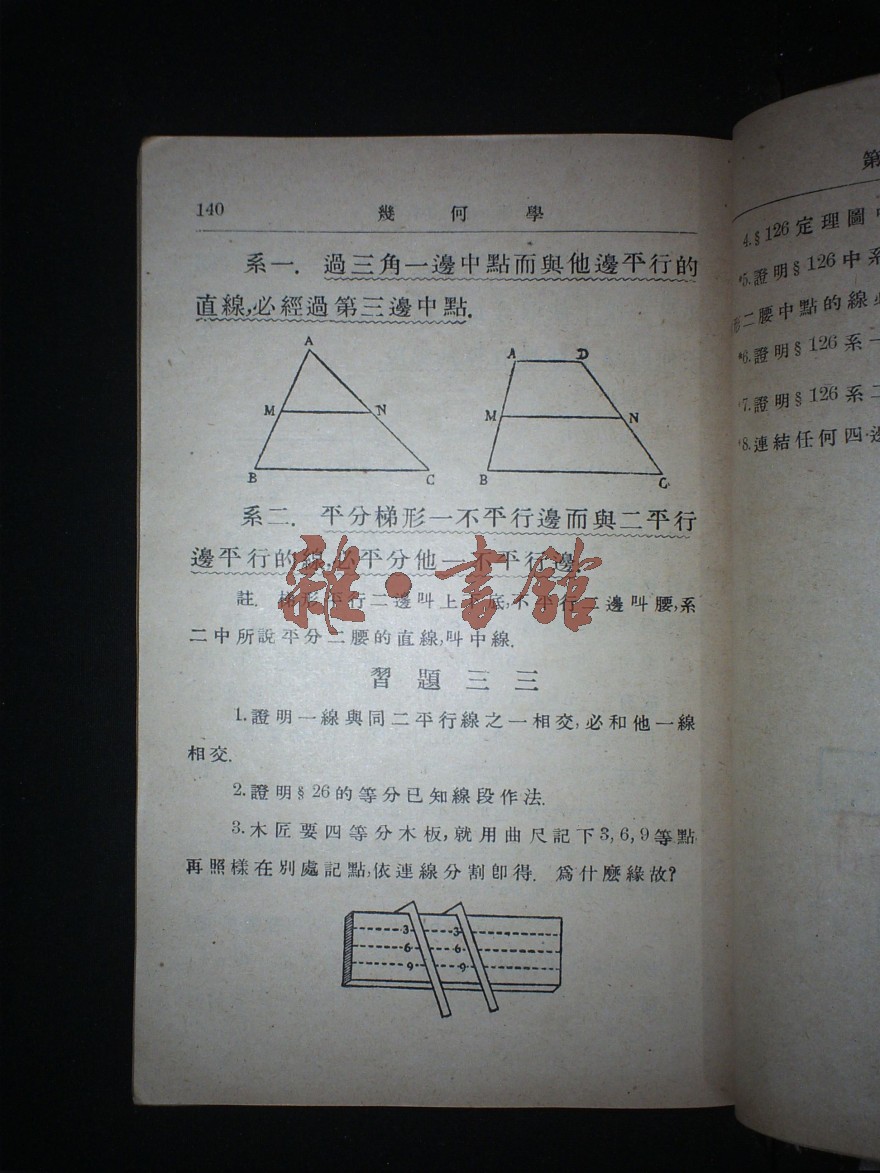 140 幾何學
系一. 過三角一邊中點而與他邊平行的
直線,必經過第三邊中點.
A
M N
B C
A D
M N
B C
系二. 平分梯形一不平行邊而與二平行
邊平行的線,必平分他一不平行邊.
註. 梯形平行二邊叫上下底,不平行二邊叫腰,系
二中所說平分二腰的直線,叫中線.
習題三三
1.證明一線與同二平行線之一相交,必和他一線
相交.
2.證明§26的等分已知線段作法.
3.木匠要四等分木板,就用曲尺記下3,6,9等點
再照樣在別處記點,依連線分割卽得. 爲什麼緣故?
3 3
6 6
9 9
雜·書館
第
4.§126定理圖
*5.證明§126中系
二腰中點的線
*6.證明§126系一
*7.證明§126系二
*8.連結任何四邊